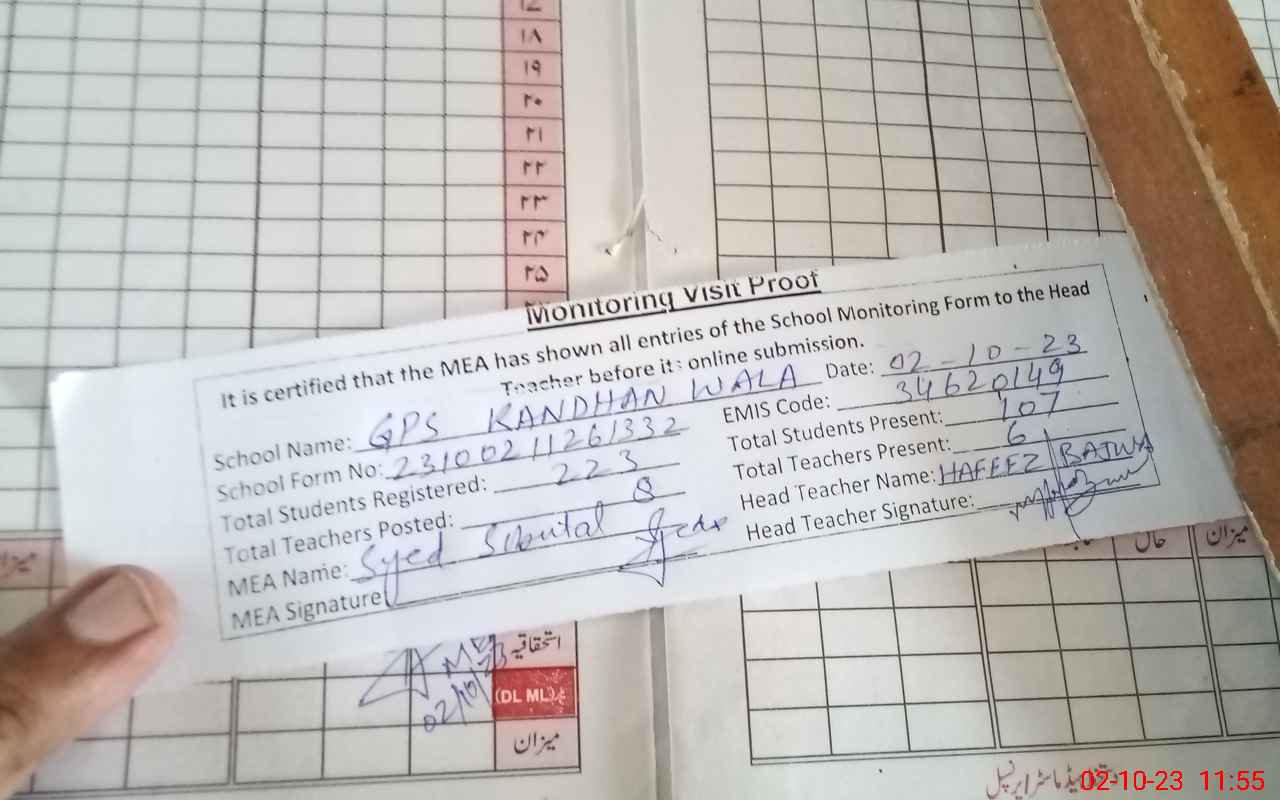 ۱۸
۱۹
۲۰
۲۱
۲۲
۲۳
۲۴
۲۵
Monitoring Visit Proof
It is certified that the MEA has shown all entries of the School Monitoring Form to the Head
Teacher before it: online submission.
School Name: GPS KANDHAN WALA Date: 02-10-23
School Form No: 23100211261332 EMIS Code: 34620149
Total Students Registered: 223 Total Students Present: 107
Total Teachers Posted: 8 Total Teachers Present: 6
MEA Name: Syed Head Teacher Name: HAFEEZ BAJWA
MEA Signature Head Teacher Signature:
میزان حال میزان
استحقاقیہ
02/10/23
(DL ML)
میزان
02-10-23 11:55